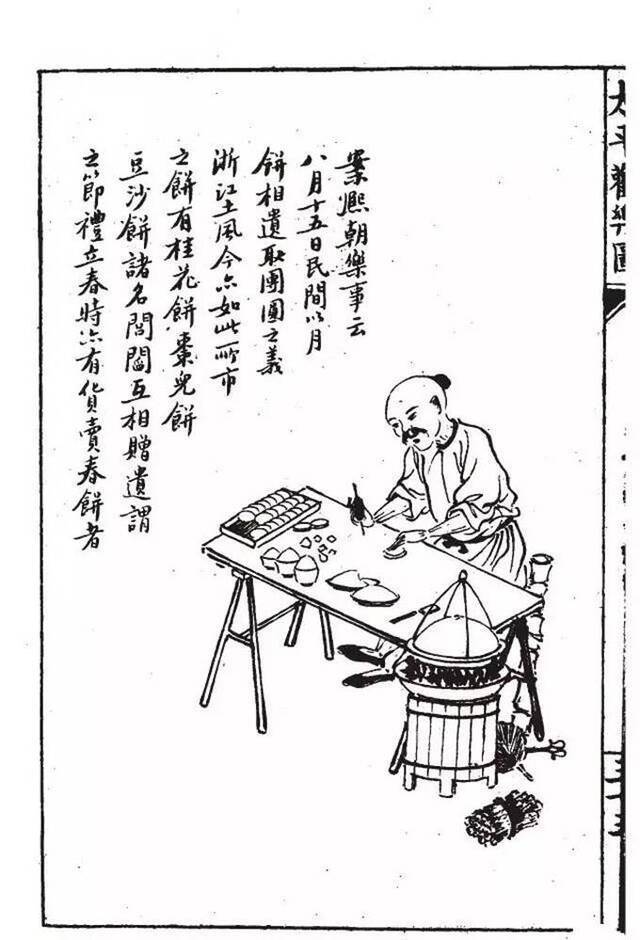 案熙朝樂事云
八月十五日民間以月
餅相遺取團圓之義
浙江土風今亦如此所市
之餅有桂花餅棗兒餅
豆沙餅諸名閭閻互相贈遺謂
之節禮立春時亦有貨賣春餅者
太平歡樂圖